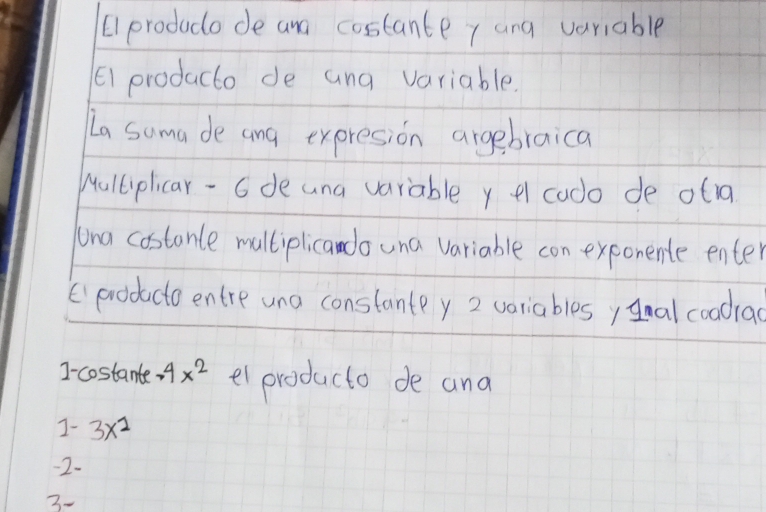 El producto de una costante y una variable
El producto de una variable.
La suma de una expresión argebraica
Multiplicar - 6 de una variable y el cudo de otra
Una costante multiplicando una variable con exponente enter
El producto entre una constante y 2 variables y 1nal coadrad
1-costante-4x² el producto de una
1- 3x²
-2-
3-